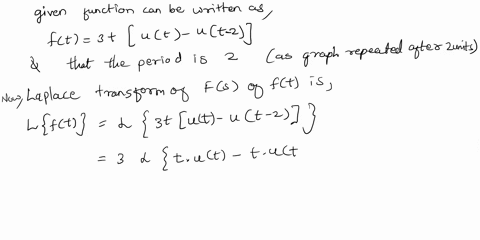 given function can be written as,
f(t) = 3t [u(t) - u(t-2)]
& that the period is 2 (as graph repeated after 2 units)
Now, Laplace transform of F(s) of f(t) is,
L{f(t)} = L {3t [u(t) - u(t-2)]}
= 3 L {t.u(t) - t.u(t